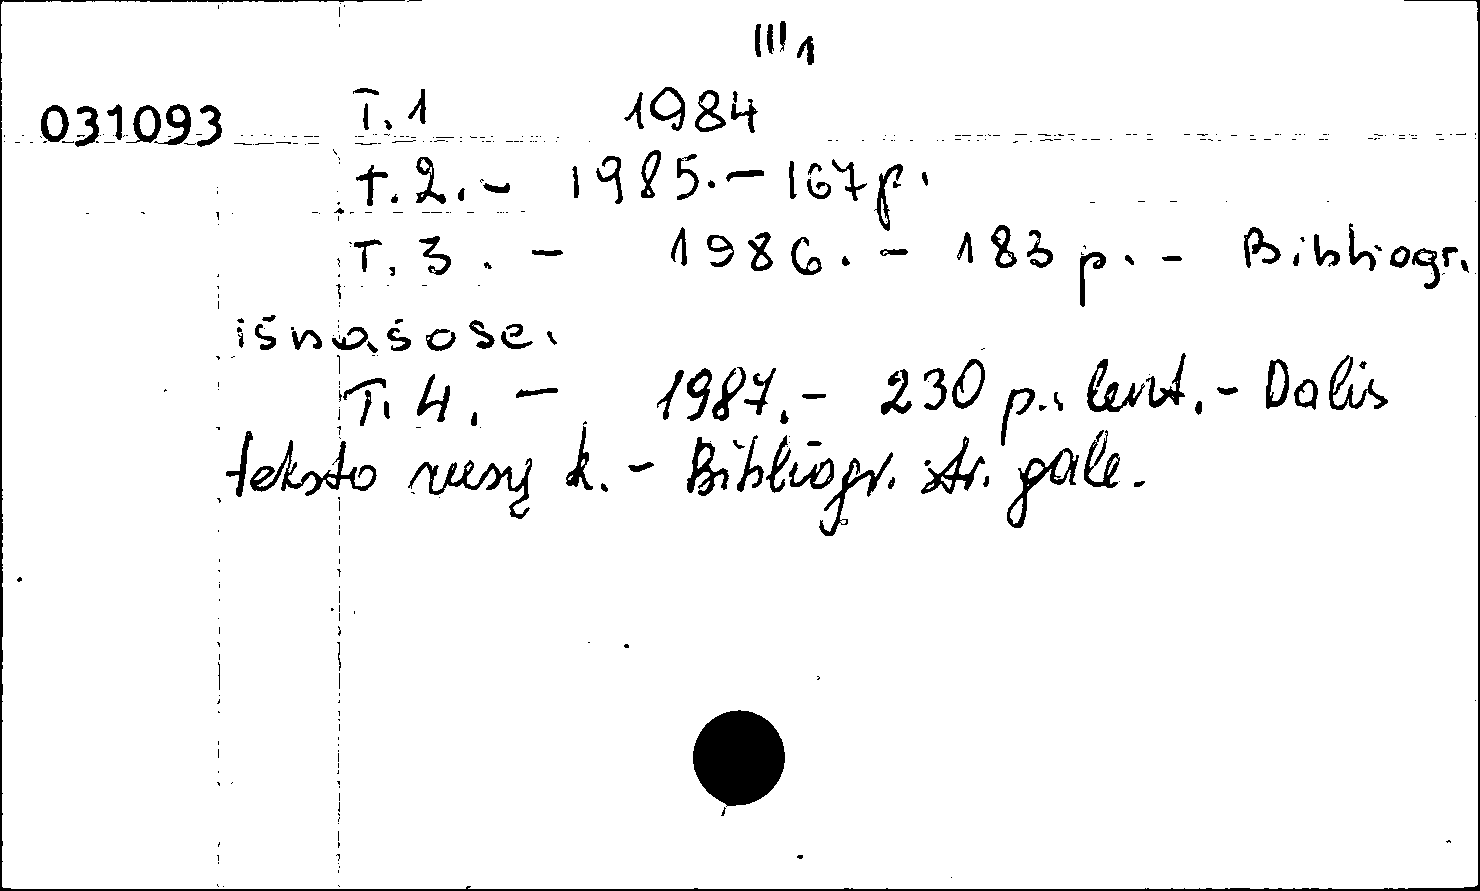 III 1
031093 T. 1 1984
T. 2. - 1985. - 167 p.
T. 3. - 1986. - 183 p. - Bibliogr.
išnašose.
T. 4. - 1987. - 230 p.: lent. - Dalis
teksto rusų k. - Bibliogr. str. gale.